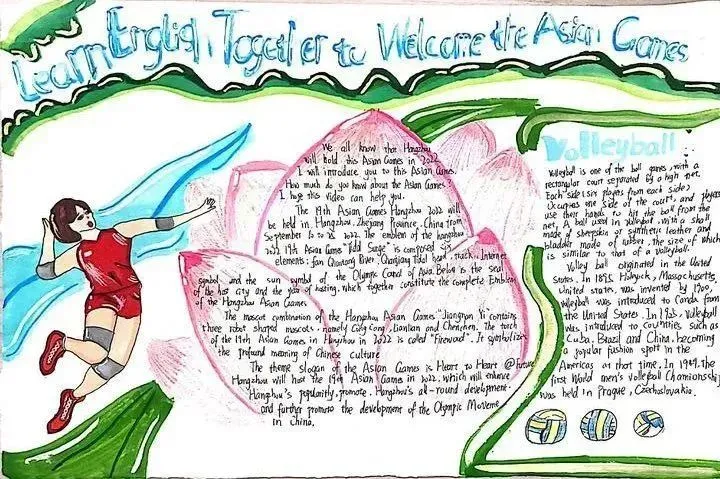 Learn English Together to Welcome the Asian Games
We all know that Hangzhou
will hold this Asian Games in 2022.
I will introduce you to this Asian Games.
How much do you know about the Asian Games?
I hope this video can help you.
The 19th Asian Games Hangzhou 2022 will
be held in Hangzhou, Zhejiang Province, China from
September 10 to 25 2022. The emblem of the hangzhou
2022 19th Asian Games "Tidal Surge" is composed of six
elements: fan Qiantang River, Qianjiang tidal head, track, Internet
symbol and the sun symbol of the Olympic Council of Asia. Below is the seal
of the host city and the year of hosting, which together constitute the complete Emblem
of the Hangzhou Asian Games
The mascot combination of the Hangzhou Asian Games "Jiangnan Yi" contains
three robot shaped mascots, namely Congcong, Lianlian and Chenchen. The torch
of the 19th Asian Games in Hangzhou in 2022 is called "Firewood". It symbolizes
the profound meaning of Chinese culture
The theme slogan of the Asian Games is Heart to Heart @Future
Hangzhou will host the 19th Asian Games in 2022, which will enhance
Hangzhou's popularity, promote Hangzhou's all-round development
and further promote the development of the Olympic Movement
in China.
Volleyball
Volleyball is one of the ball games, with a
rectangular court separated by a high net.
Each side (six players from each side)
Occupies one side of the court, and players
use their hands to hit the ball from the
net, A ball used in volleyball, with a shell
made of sheepskin or synthetic leather and
bladder made of rubber, the size of which
is similar to that of a volleyball.
Volley ball originated in the United
States. In 1895, Holyoke, Massachusetts,
United states, was invented by 1900,
volleyball was introduced to Canada from
the United States. In 1905, Volleyball
was introduced to countries such as
Cuba, Brazil and China, becoming
a popular fashion sport in the
Americas at that time. In 1949, the
first World men's volleyball Championship
was held in Prague, Czechoslovakia.